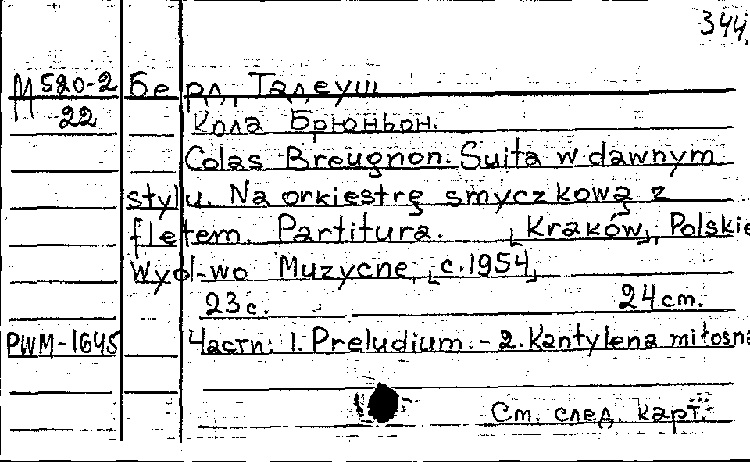 344.
М 520-2 Бе рд, Тадеуш
22 Кола Брюньон.
Colas Breugnon. Suita w dawnym
stylu. Na orkiestrę smyczkową z
fletem. Partitura. [Kraków], Polskie
Wyd-wo Muzyczne, [c.1954]
23 с. 24 cm.
PWM-1645 Части: 1. Preludium. - 2. Kantylena miłosna
См. след. карт.